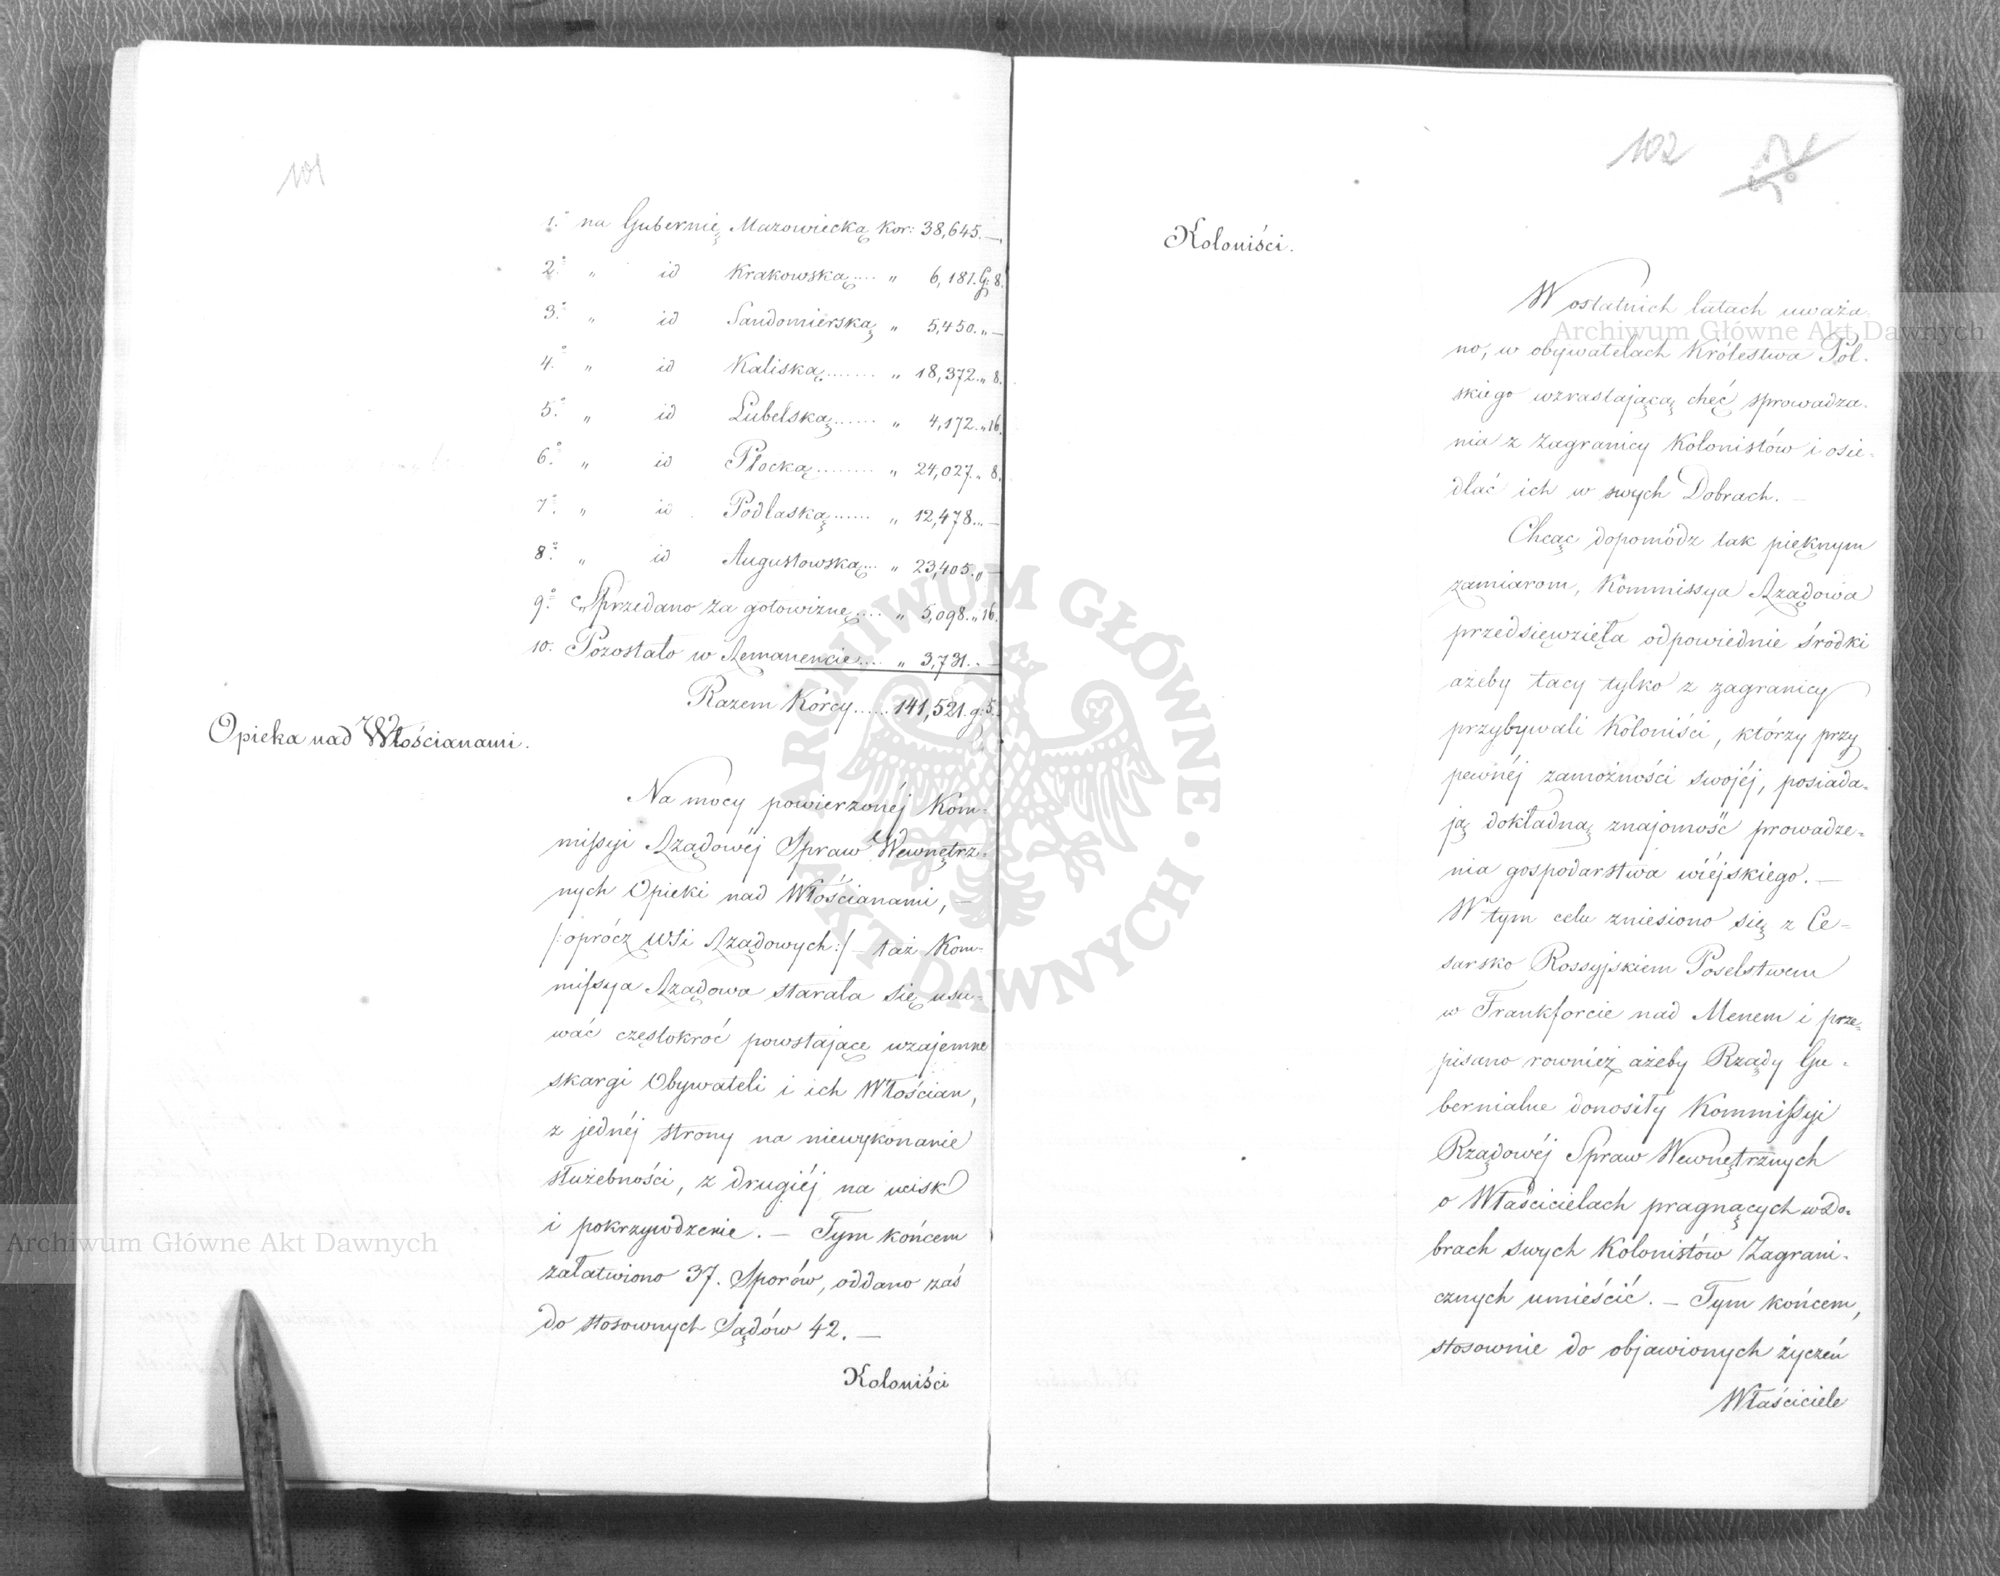 101
1.° na Gubernię Mazowiecką kor: 38,645.—
2.° „ id Krakowską.... „ 6,181.G:8.
3.° „ id Sandomierską „ 5,450.„—
4.° „ id Kaliską........ „ 18,372.„8.
5.° „ id Lubelską...... „ 4,172.„16.
6.° „ id Płocką........ „ 24,027.„8.
7.° „ id Podlaską...... „ 12,478.„—
8.° „ id Augustowską... „ 23,405.„—
9.° Sprzedano za gotowiznę.... „ 5,098.„16.
10. Pozostało w Remanencie.... „ 3,731..—
Razem Korcy..... 141,521.g:5.
Opieka nad Włościanami.
Na mocy powierzonéj Kom-
missyi Rządowéj Spraw Wewnętrz-
nych Opieki nad Włościanami, —
/:oprócz Wsi Rządowych:/ — taż Kom-
missya Rządowa starała się usu-
wać częstokroć powstające wzajemne
skargi Obywateli i ich Włościan,
z jednéj strony na niewykonanie
służebności, z drugiéj na ucisk
i pokrzywdzenie. — Tym końcem
załatwiono 37. Sporów, oddano zaś
do stosownych Sądów 42. —
Koloniści
102
Koloniści.
W ostatnich latach uważa-
no, w obywatelach Królestwa Pol-
skiego wzrastającą chęć sprowadza-
nia z zagranicy Kolonistów i osie-
dlać ich w swych Dobrach. —
Chcąc dopomódz tak pięknym
zamiarom, Kommissya Rządowa
przedsięwzięła odpowiednie środki
ażeby tacy tylko z zagranicy
przybywali Koloniści, którzy przy
pewnéj zamożności swojéj, posiada-
ją dokładną znajomość prowadze-
nia gospodarstwa wiéjskiego. —
W tym celu zniesiono się z Ce-
sarsko Rossyjskiem Poselstwem
w Frankforcie nad Menem i prze-
pisano rownież ażeby Rządy Gu-
bernialne donosiły Kommissyi
Rządowéj Spraw Wewnętrznych
o Właścicielach pragnących w Do-
brach swych Kolonistów Zagrani-
cznych umieścić. — Tym końcem,
stosownie do objawionych życzeń
Właściciele
Archiwum Główne Akt Dawnych
Archiwum Główne Akt Dawnych
ARCHIWUM GŁÓWNE · AKT DAWNYCH ·